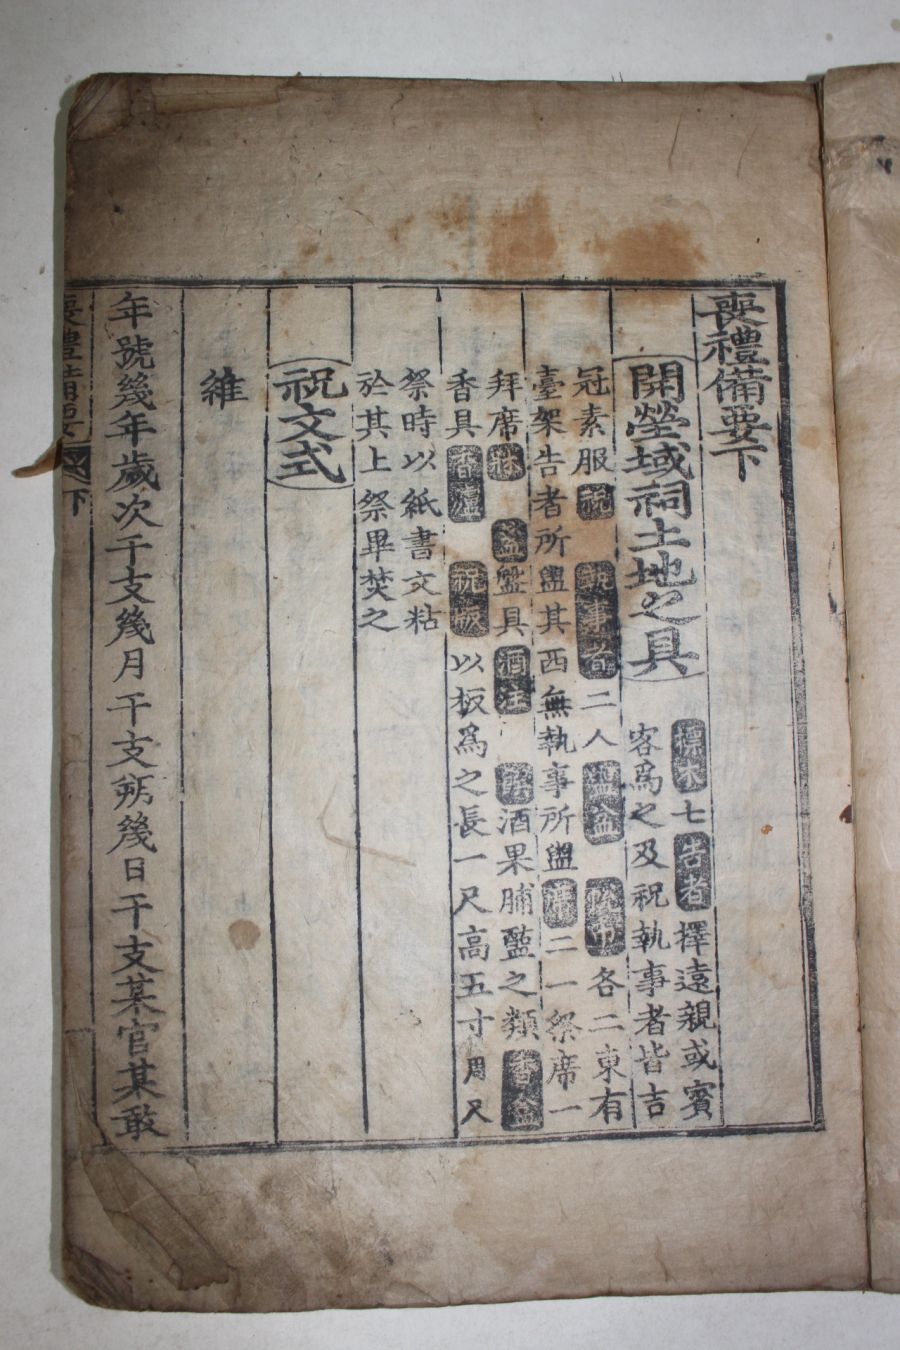 喪禮備要下
開塋域祠土地之具
標木七告者擇遠親或賓
客爲之及祝執事者皆吉
冠素服祝執事者二人盥盆帨巾各二東有
臺架告者所盥其西無執事所盥席二一祭席一
拜席盞盤具酒注饌酒果脯醢之類香盒
香具香爐祝板以板爲之長一尺高五寸周尺
祭時以紙書文粘
於其上祭畢焚之
祝文式
維
年號幾年歲次干支幾月干支朔幾日干支某官某敢
喪禮備要 下